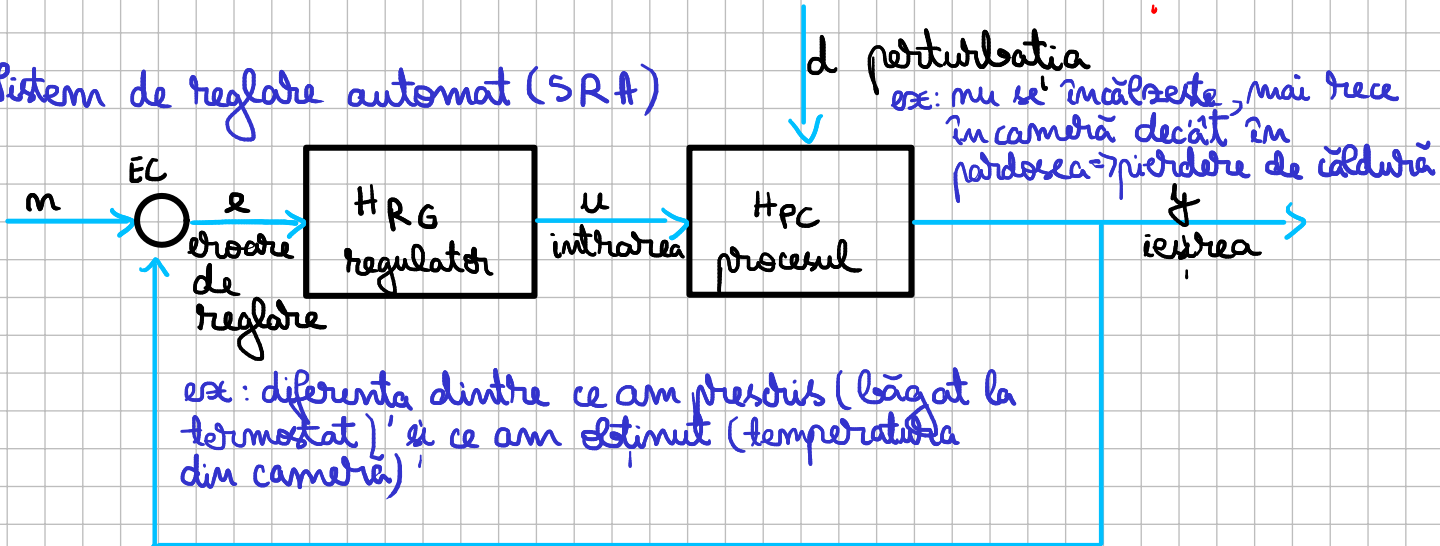 Sistem de reglare automat (SRA)
d perturbația
ex: nu se încălzește, mai rece
în cameră decât în
pardosea=>pierdere de căldură
EC
r
e
eroare
de
reglare
H RG
regulator
u
intrarea
H PC
procesul
y
ieșirea
ex: diferența dintre ce am prescris (băgat la
termostat) și ce am obținut (temperatura
din cameră)